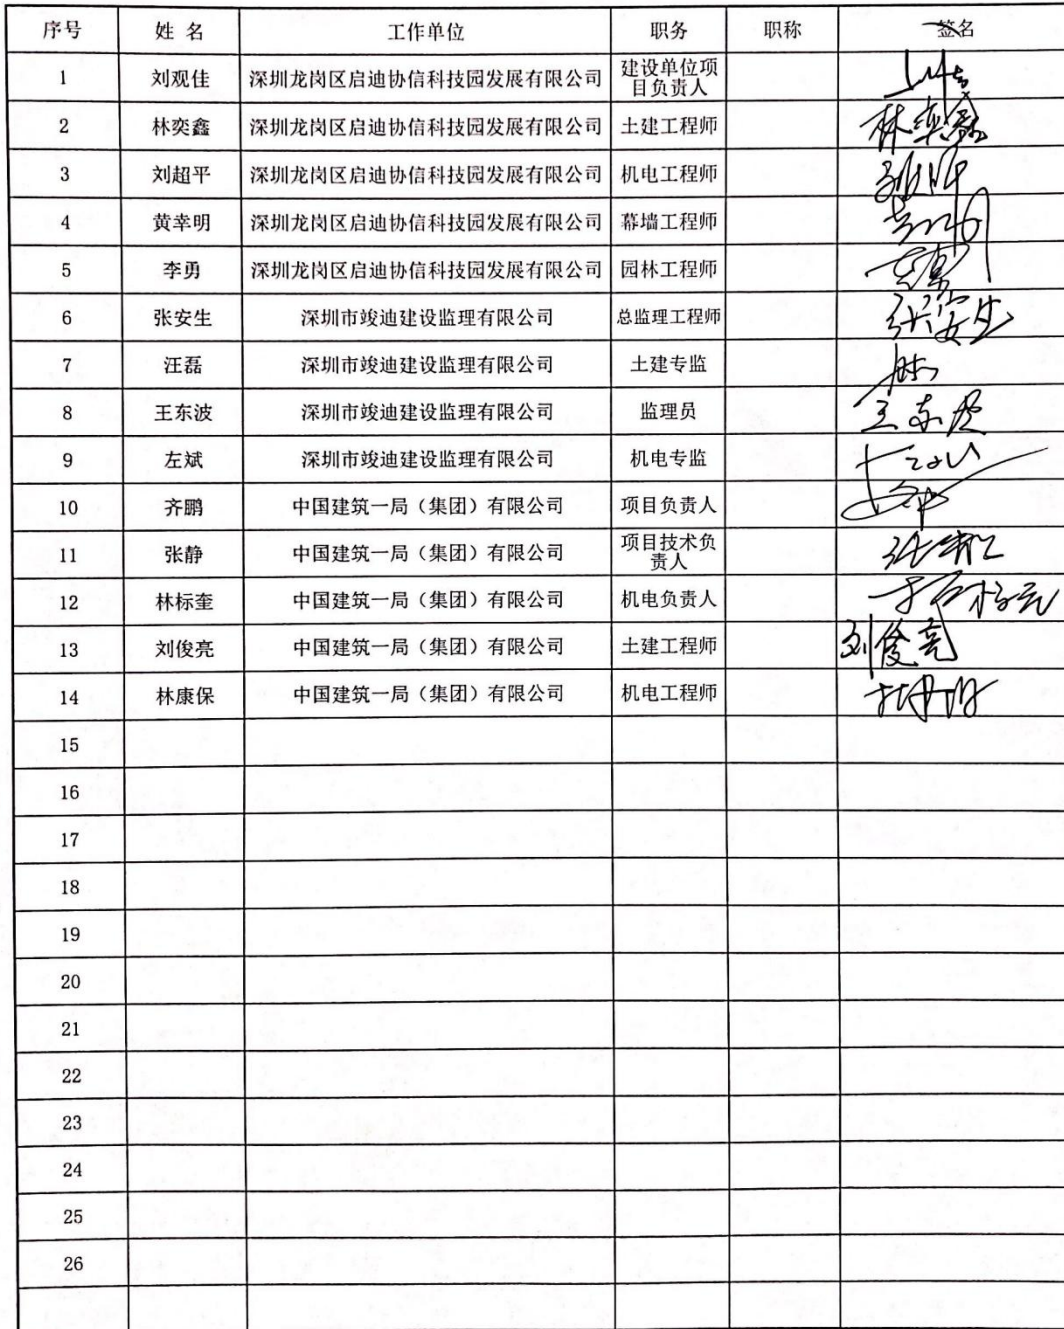 序号 姓 名 工作单位 职务 职称 签名
1 刘观佳 深圳龙岗区启迪协信科技园发展有限公司 建设单位项
目负责人
2 林奕鑫 深圳龙岗区启迪协信科技园发展有限公司 土建工程师 林奕鑫
3 刘超平 深圳龙岗区启迪协信科技园发展有限公司 机电工程师
4 黄幸明 深圳龙岗区启迪协信科技园发展有限公司 幕墙工程师
5 李勇 深圳龙岗区启迪协信科技园发展有限公司 园林工程师
6 张安生 深圳市竣迪建设监理有限公司 总监理工程师 张安生
7 汪磊 深圳市竣迪建设监理有限公司 土建专监
8 王东波 深圳市竣迪建设监理有限公司 监理员 王东波
9 左斌 深圳市竣迪建设监理有限公司 机电专监
10 齐鹏 中国建筑一局（集团）有限公司 项目负责人
11 张静 中国建筑一局（集团）有限公司 项目技术负
责人 张静
12 林标奎 中国建筑一局（集团）有限公司 机电负责人
13 刘俊亮 中国建筑一局（集团）有限公司 土建工程师 刘俊亮
14 林康保 中国建筑一局（集团）有限公司 机电工程师
15
16
17
18
19
20
21
22
23
24
25
26